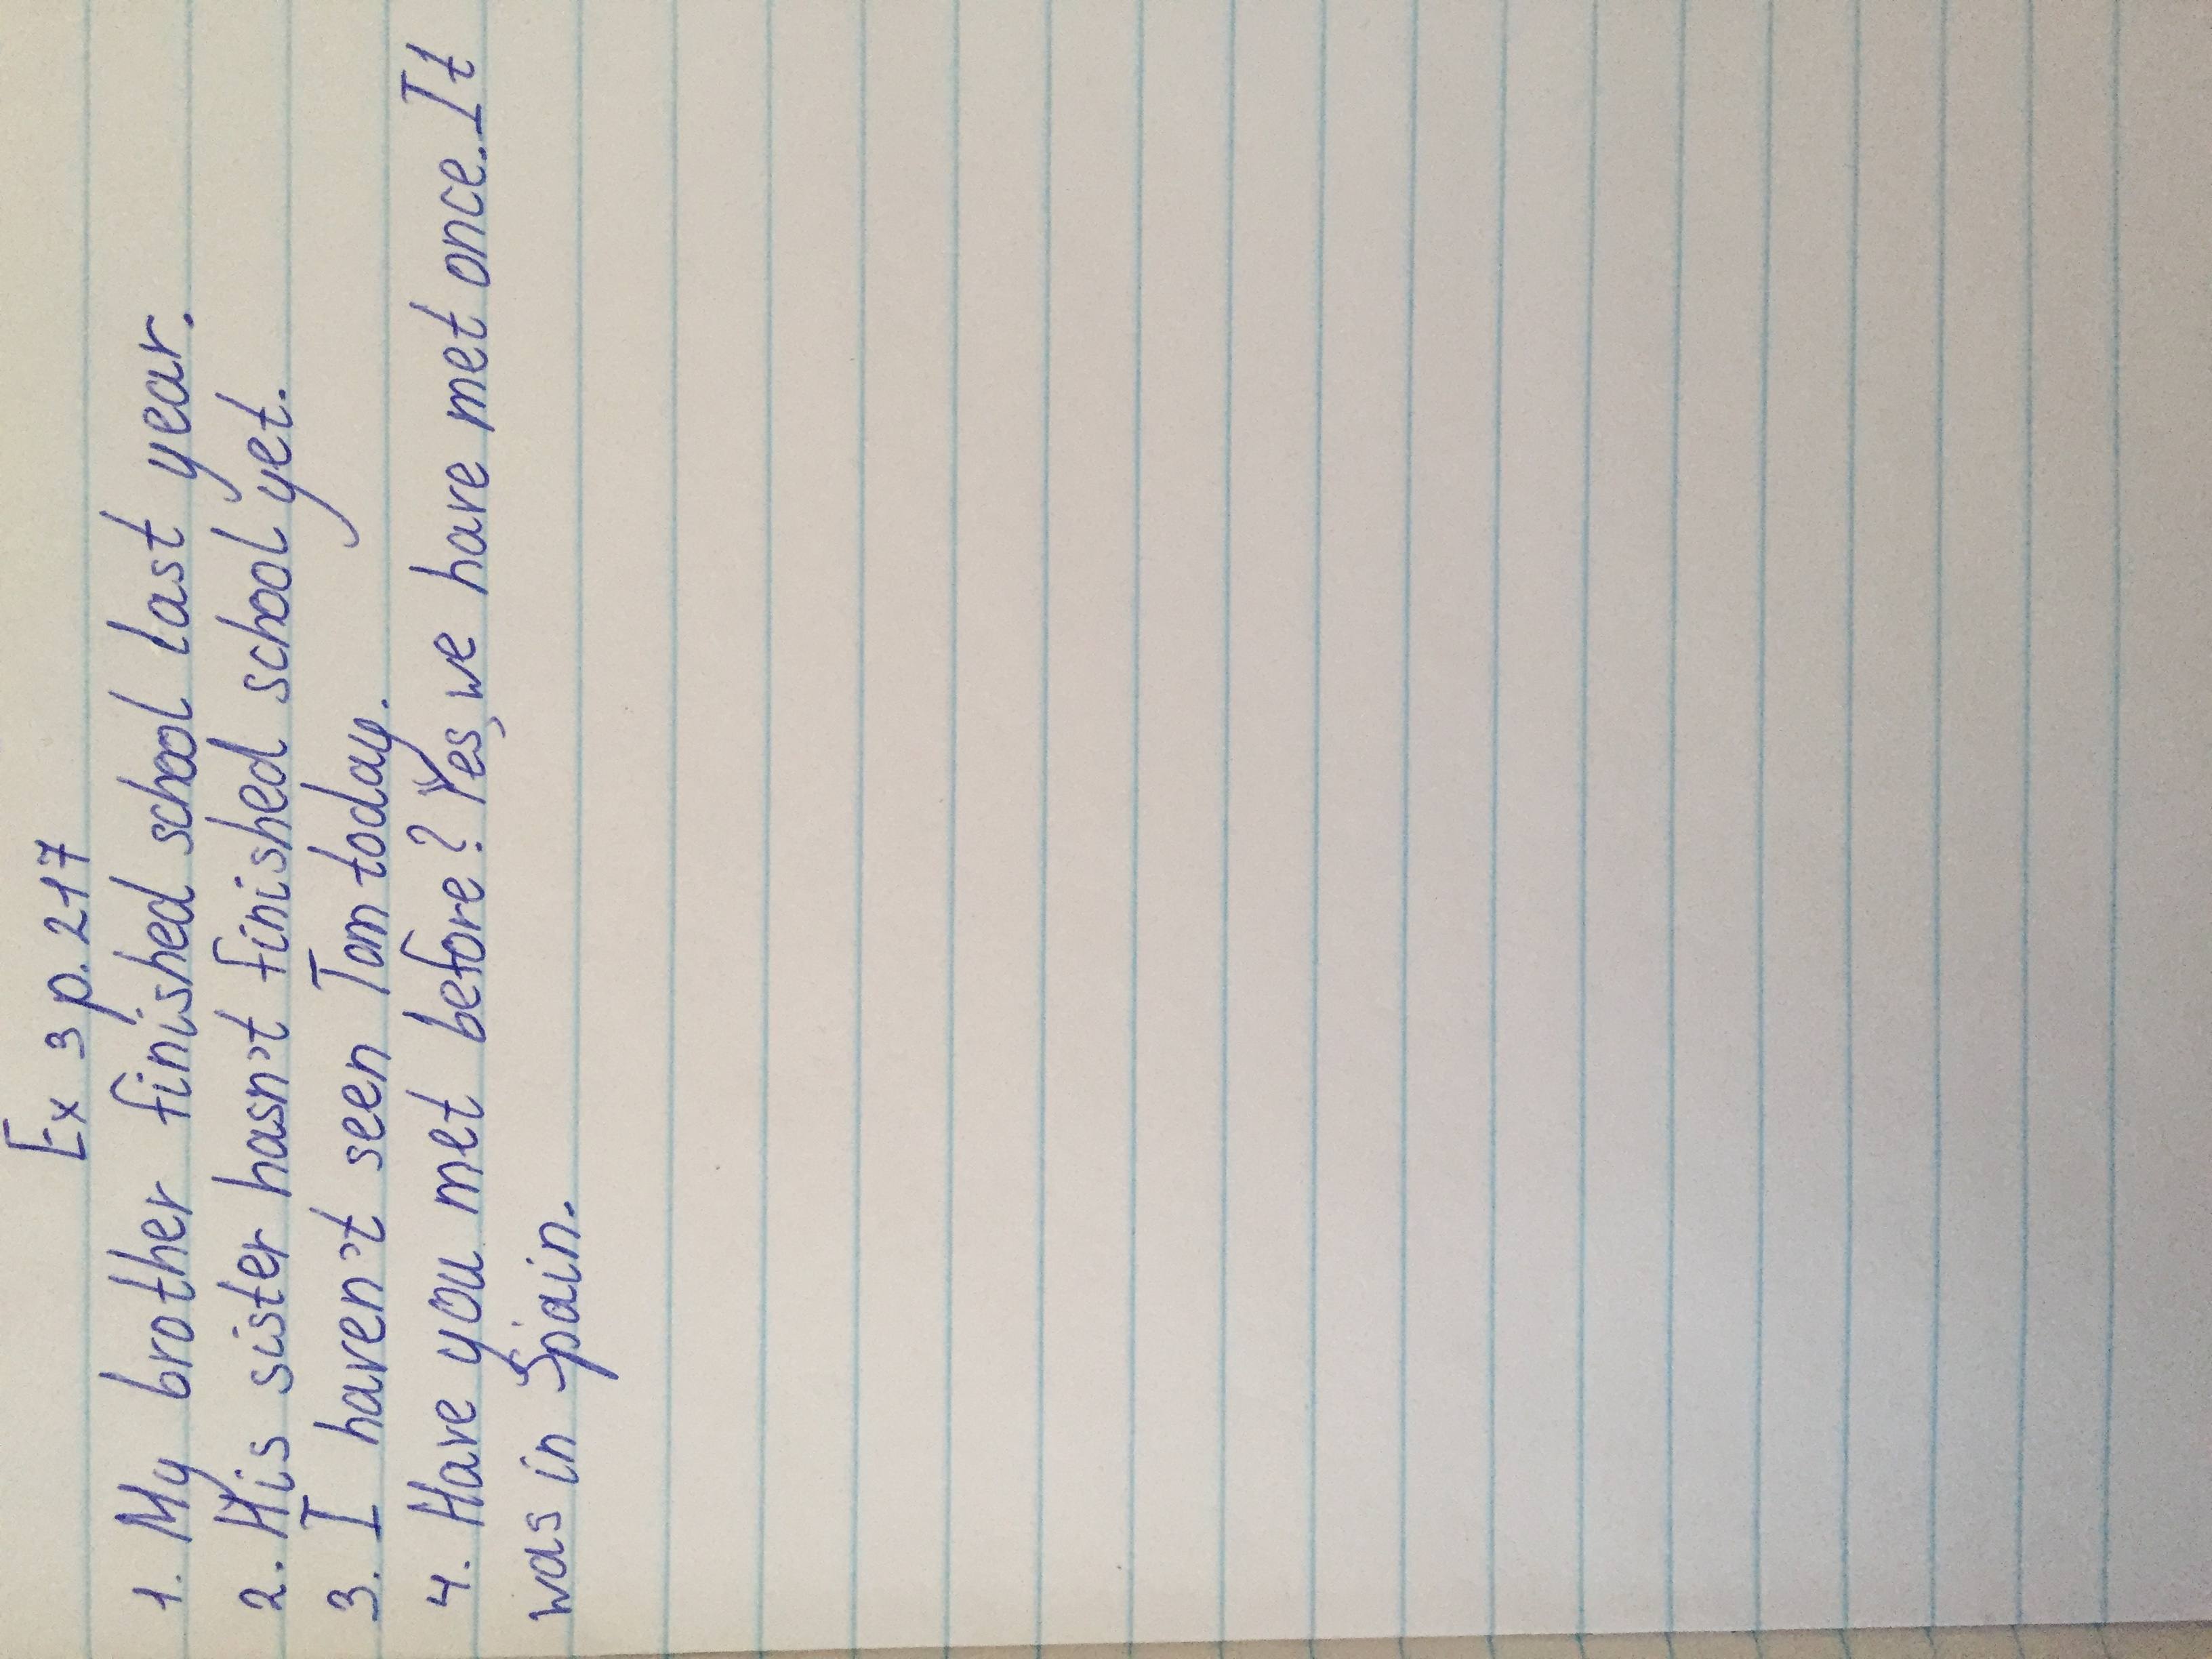 Ex 3 p. 217
1. My brother finished school last year.
2. His sister hasn't finished school yet.
3. I haven't seen Tom today.
4. Have you met before? Yes, we have met once. It
was in Spain.